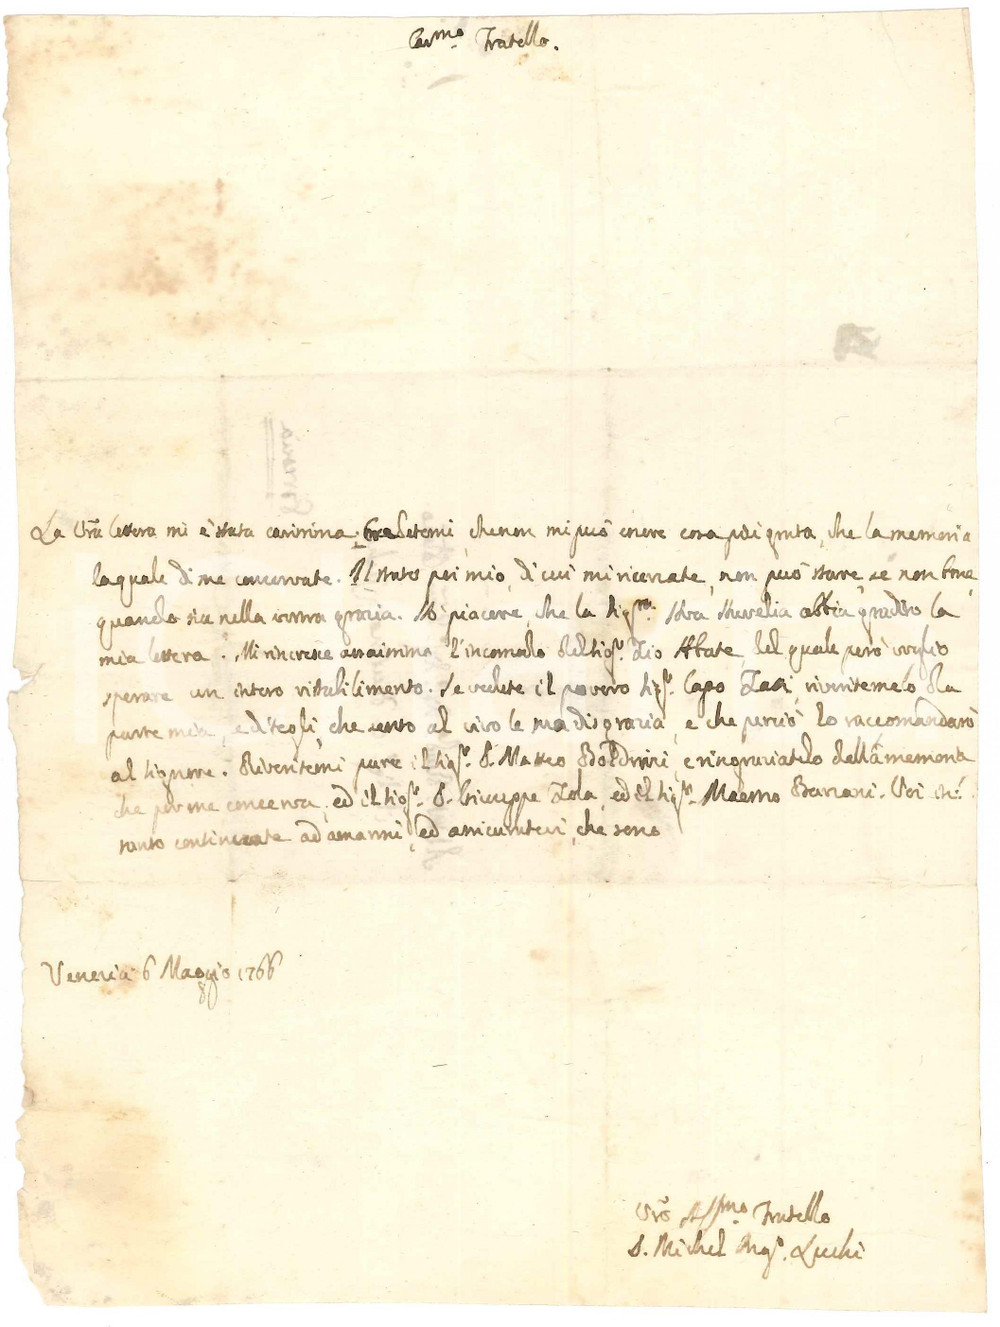 Carmo Fratello.
La Vrã lettera mi è stata carissima. Credetemi, che non mi può essere cosa più grata, che la memoria
la quale di me conservate. Il stato poi mio, di cui mi ricercate, non può stare, se non bene,
quando sia nella vostra grazia. Ho piacere, che la Sigra. Aurelia abbia gradito la
mia lettera. Mi rincresce assaissimo l'incomodo del Sigr. Zio Abate, del quale però voglio
sperare un intero ristabilimento. Se vedete il povero Sigr. Capo Tassi, riveritemelo da
parte mia, e ditegli, che sento al vivo le sua disgrazia, e che perciò lo raccomandarò
al Signore. Riveritemi pure il Sigr. D. Matteo, e ringraziatelo della memoria
che per me conserva, ed il Sigr. D. Giuseppe Zola, ed il Sigr. Maestro Bariani. Voi in-
tanto continuate ad amarmi, ed assicuratevi, che sono
Venezia 6 Maggio 1766
Vrõ Affmo Fratello
D. Michel Ango. Luchi